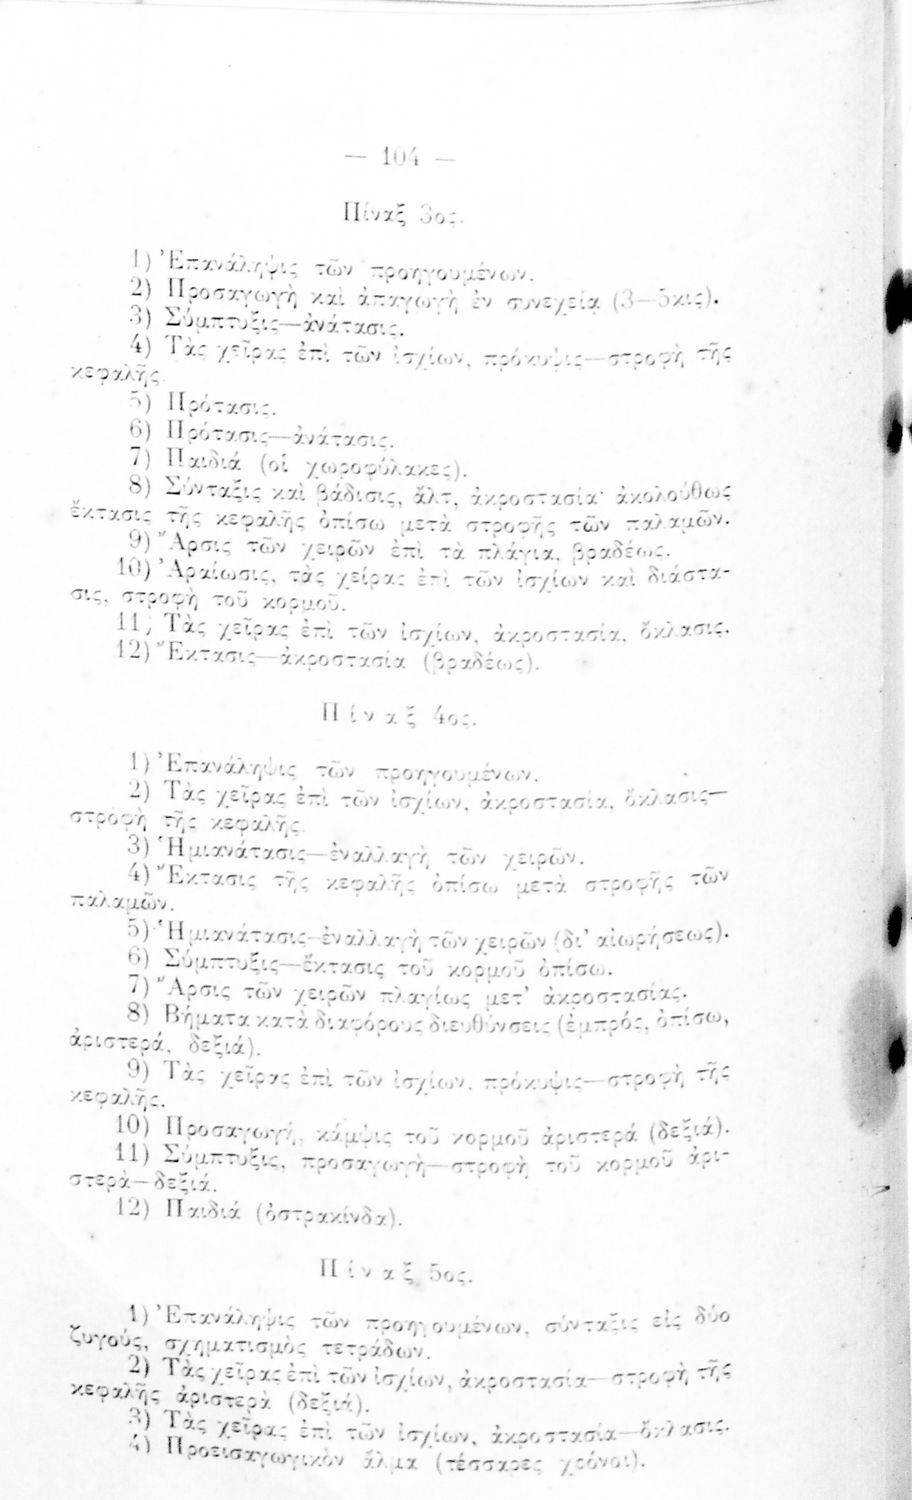 — 104 —
Πίναξ 3ος.
1) Ἐπανάληψις τῶν προηγουμένων.
2) Προσαγωγὴ καὶ ἀπαγωγὴ ἐν συνεχείᾳ (3—5κις).
3) Σύμπτυξις—ἀνάτασις.
4) Τὰς χεῖρας ἐπὶ τῶν ἰσχίων, πρόκυψις—στροφὴ τῆς
κεφαλῆς.
5) Πρότασις.
6) Πρότασις—ἀνάτασις.
7) Παιδιά (οἱ χωροφύλακες).
8) Σύνταξις καὶ βάδισις, ἄλτ, ἀκροστασία· ἀκολούθως
ἔκτασις τῆς κεφαλῆς ὀπίσω μετὰ στροφῆς τῶν παλαμῶν.
9) Ἄρσις τῶν χειρῶν ἐπὶ τὰ πλάγια, βραδέως.
10) Ἀραίωσις, τὰς χεῖρας ἐπὶ τῶν ἰσχίων καὶ διάστα-
σις, στροφὴ τοῦ κορμοῦ.
11) Τὰς χεῖρας ἐπὶ τῶν ἰσχίων, ἀκροστασία, ὄκλασις.
12) Ἔκτασις—ἀκροστασία (βραδέως).
Πίναξ 4ος.
1) Ἐπανάληψις τῶν προηγουμένων.
2) Τὰς χεῖρας ἐπὶ τῶν ἰσχίων, ἀκροστασία, ὄκλασις—
στροφὴ τῆς κεφαλῆς.
3) Ἡμιανάτασις—ἐναλλαγὴ τῶν χειρῶν.
4) Ἔκτασις τῆς κεφαλῆς ὀπίσω μετὰ στροφῆς τῶν
παλαμῶν.
5) Ἡμιανάτασις—ἐναλλαγὴ τῶν χειρῶν (δι' αἰωρήσεως).
6) Σύμπτυξις—ἔκτασις τοῦ κορμοῦ ὀπίσω.
7) Ἄρσις τῶν χειρῶν πλαγίως μετ' ἀκροστασίας.
8) Βήματα κατὰ διαφόρους διευθύνσεις (ἐμπρός, ὀπίσω,
ἀριστερά, δεξιά).
9) Τὰς χεῖρας ἐπὶ τῶν ἰσχίων, πρόκυψις—στροφὴ τῆς
κεφαλῆς.
10) Προσαγωγή, κάμψις τοῦ κορμοῦ ἀριστερά (δεξιά).
11) Σύμπτυξις, προσαγωγὴ—στροφὴ τοῦ κορμοῦ ἀρι-
στερὰ—δεξιά.
12) Παιδιά (ὀστρακίνδα).
Πίναξ 5ος.
1) Ἐπανάληψις τῶν προηγουμένων, σύνταξις εἰς δύο
ζυγούς, σχηματισμὸς τετράδων.
2) Τὰς χεῖρας ἐπὶ τῶν ἰσχίων, ἀκροστασία—στροφὴ τῆς
κεφαλῆς ἀριστερὰ (δεξιά).
3) Τὰς χεῖρας ἐπὶ τῶν ἰσχίων, ἀκροστασία—ὄκλασις.
4) Προεισαγωγικὸν ἅλμα (τέσσαρες χρόνοι).